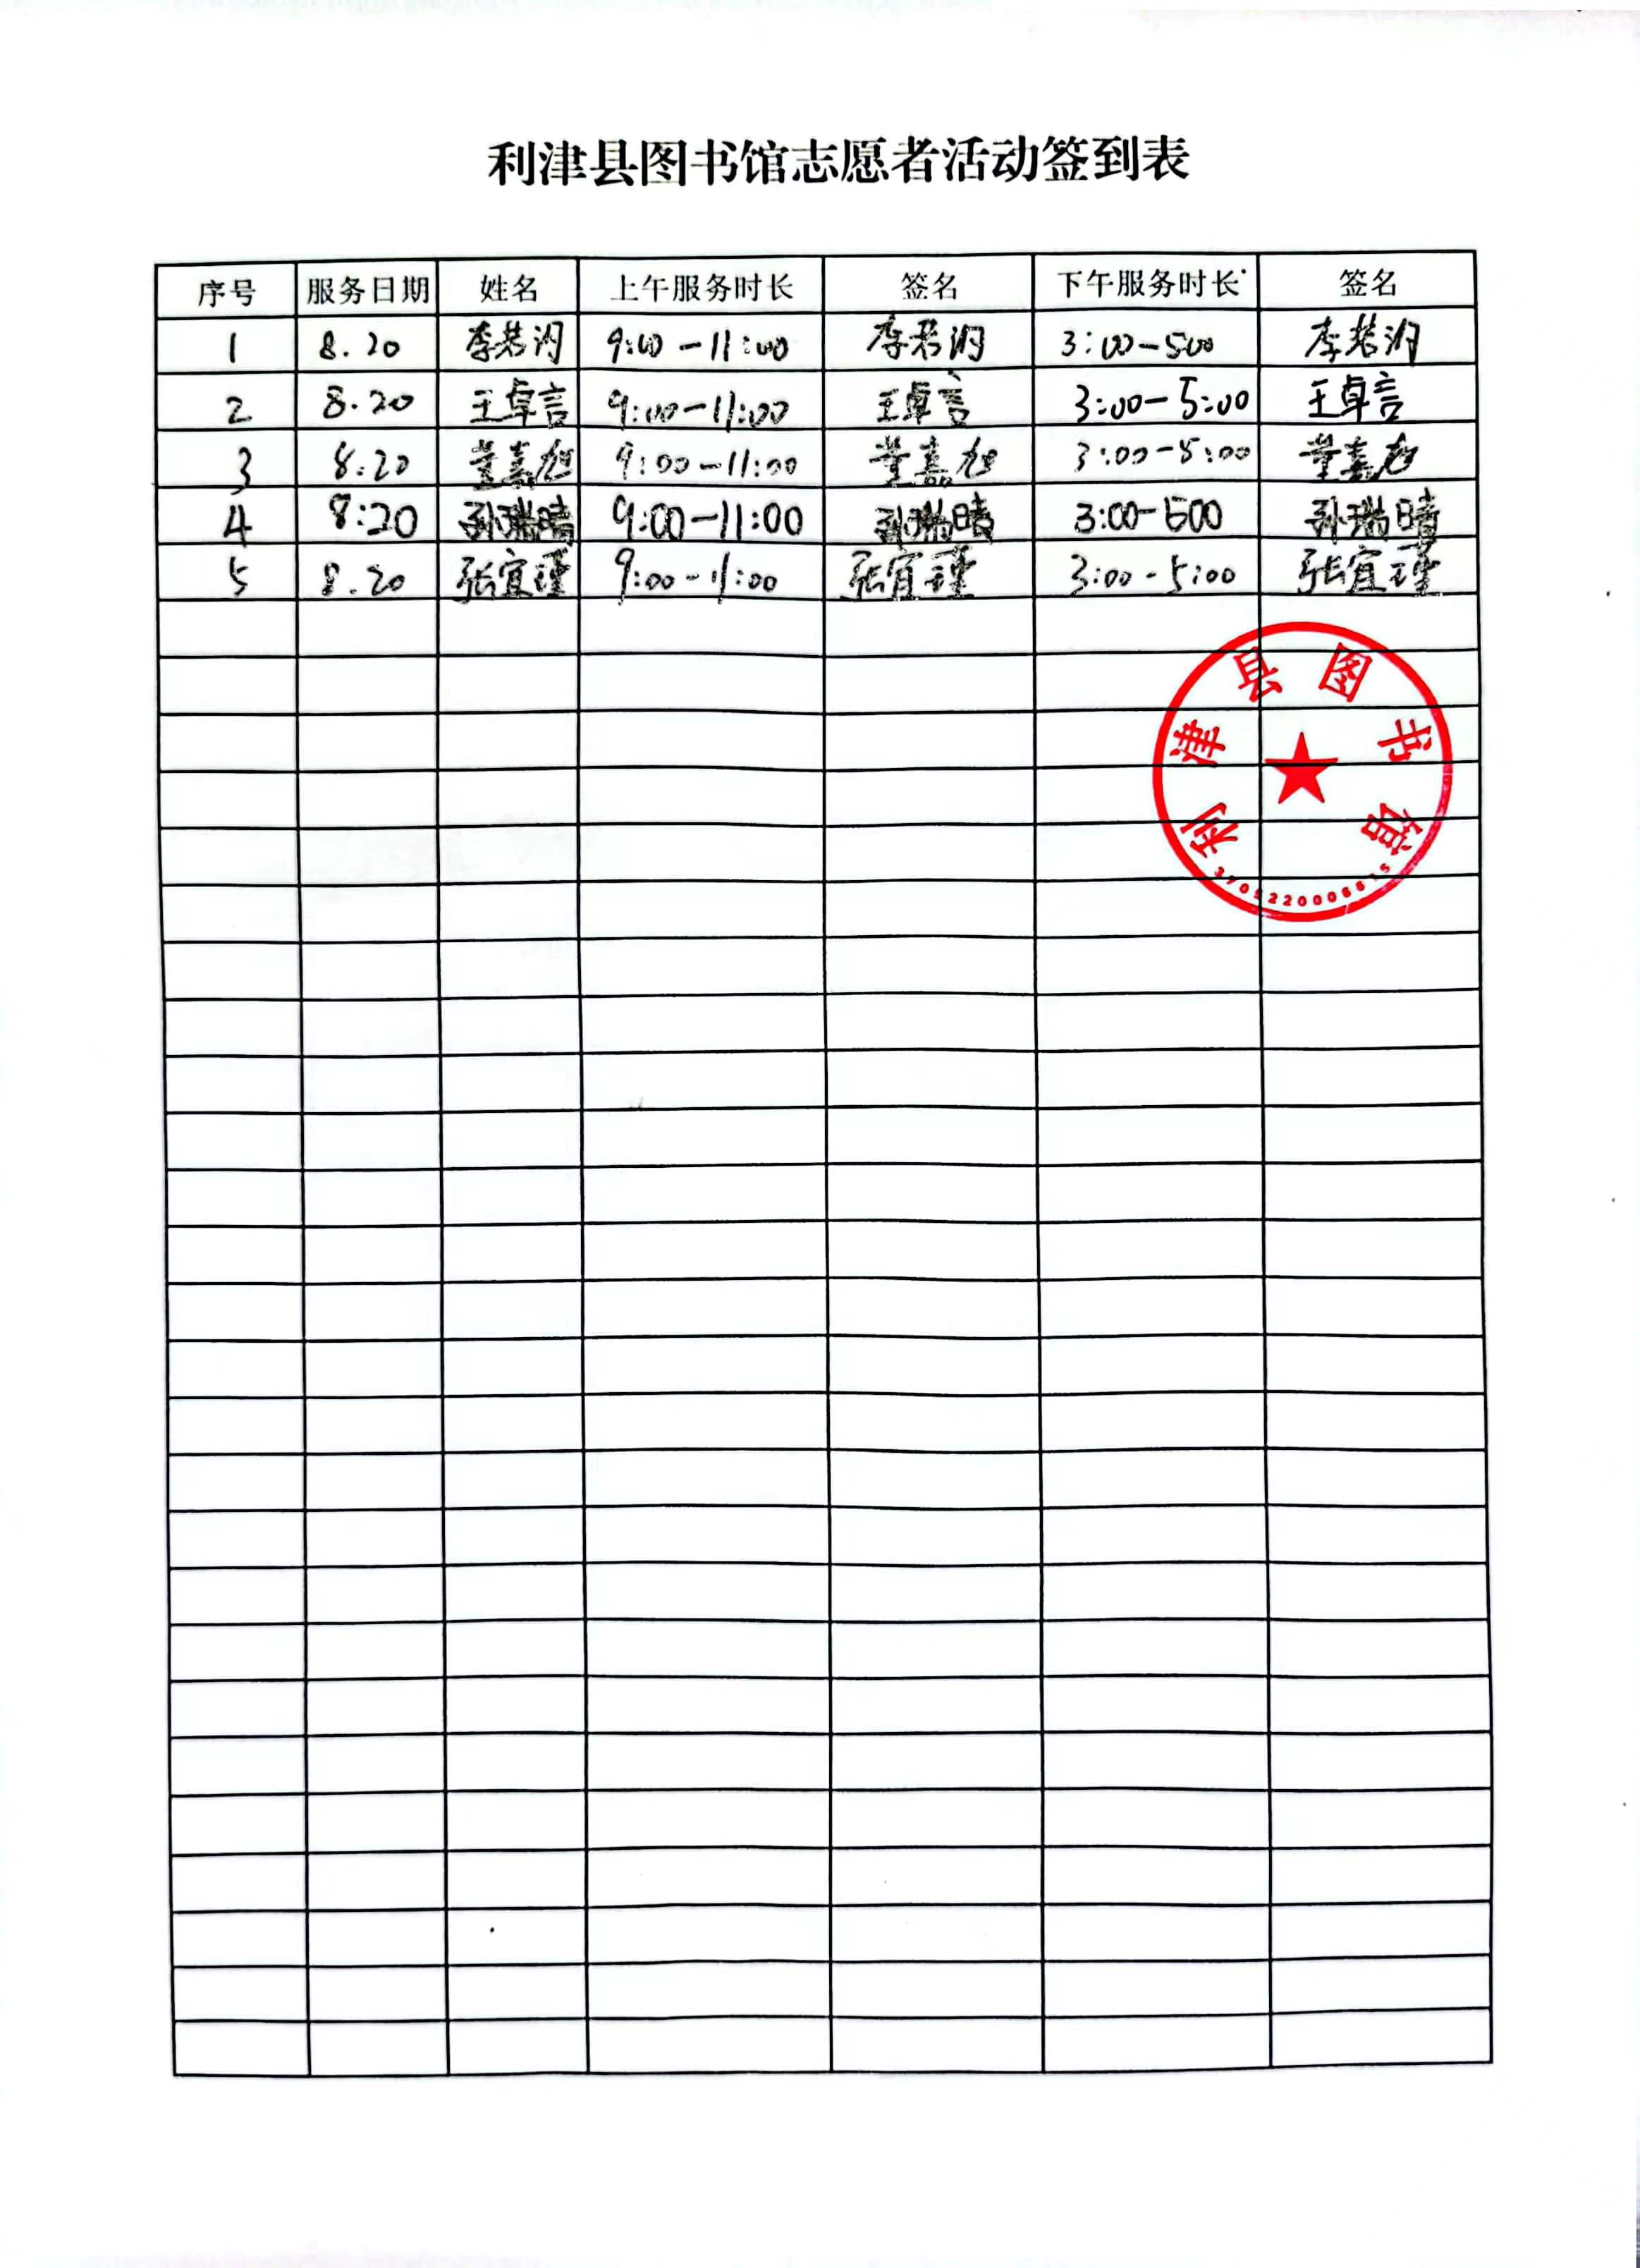 利津县图书馆志愿者活动签到表
序号 服务日期 姓名 上午服务时长 签名 下午服务时长 签名
1 8.20 李若汭 9:00-11:00 李若汭 3:00-500 李若汭
2 8.20 王卓言 9:00-11:00 王卓言 3:00-5:00 王卓言
3 8.20 董嘉旭 9:00-11:00 董嘉旭 3:00-5:00 董嘉旭
4 8:20 孙瑞晴 9:00-11:00 孙瑞晴 3:00-500 孙瑞晴
5 8.20 张宜瑾 9:00-11:00 张宜瑾 3:00-5:00 张宜瑾
利津县图书馆